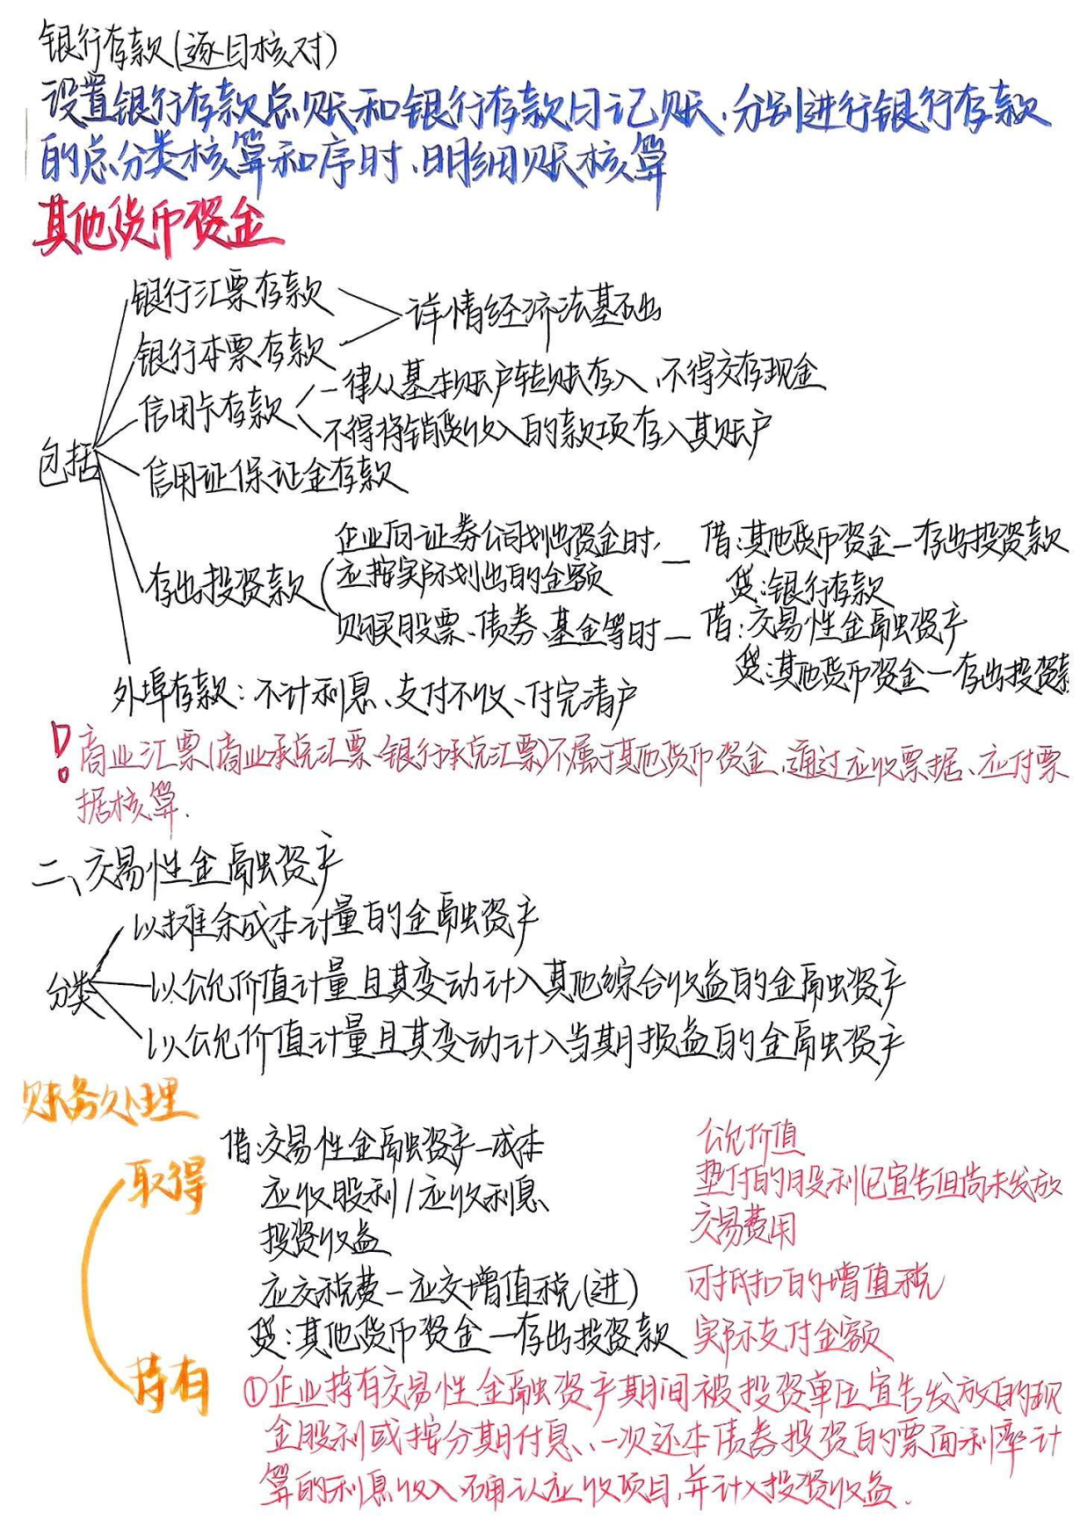 银行存款(逐日核对)
设置银行存款总账和银行存款日记账,分别进行银行存款
的总分类核算和序时、明细账核算
其他货币资金
包括
银行汇票存款
银行本票存款
详情经济法基础
信用卡存款
一律从基本账户转账存入、不得交存现金
不得将销货收入的款项存入其账户
信用证保证金存款
存出投资款
企业向证券公司划出资金时,
应按实际划出的金额
借:其他货币资金—存出投资款
贷:银行存款
购买股票、债券、基金等时
借:交易性金融资产
贷:其他货币资金—存出投资款
外埠存款:不计利息、支付不收、付完清户
商业汇票(商业承兑汇票、银行承兑汇票)不属于其他货币资金,通过应收票据、应付票
据核算.
二、交易性金融资产
分类
以摊余成本计量的金融资产
以公允价值计量且其变动计入其他综合收益的金融资产
以公允价值计量且其变动计入当期损益的金融资产
账务处理
取得
借:交易性金融资产—成本 公允价值
应收股利/应收利息 垫付的股利(已宣告但尚未发放
投资收益 交易费用
应交税费—应交增值税(进) 可抵扣的增值税
贷:其他货币资金—存出投资款 实际支付金额
持有
①企业持有交易性金融资产期间被投资单位宣告发放的现
金股利或按分期付息、一次还本债券投资的票面利率计
算的利息收入确认应收项目,并计入投资收益.